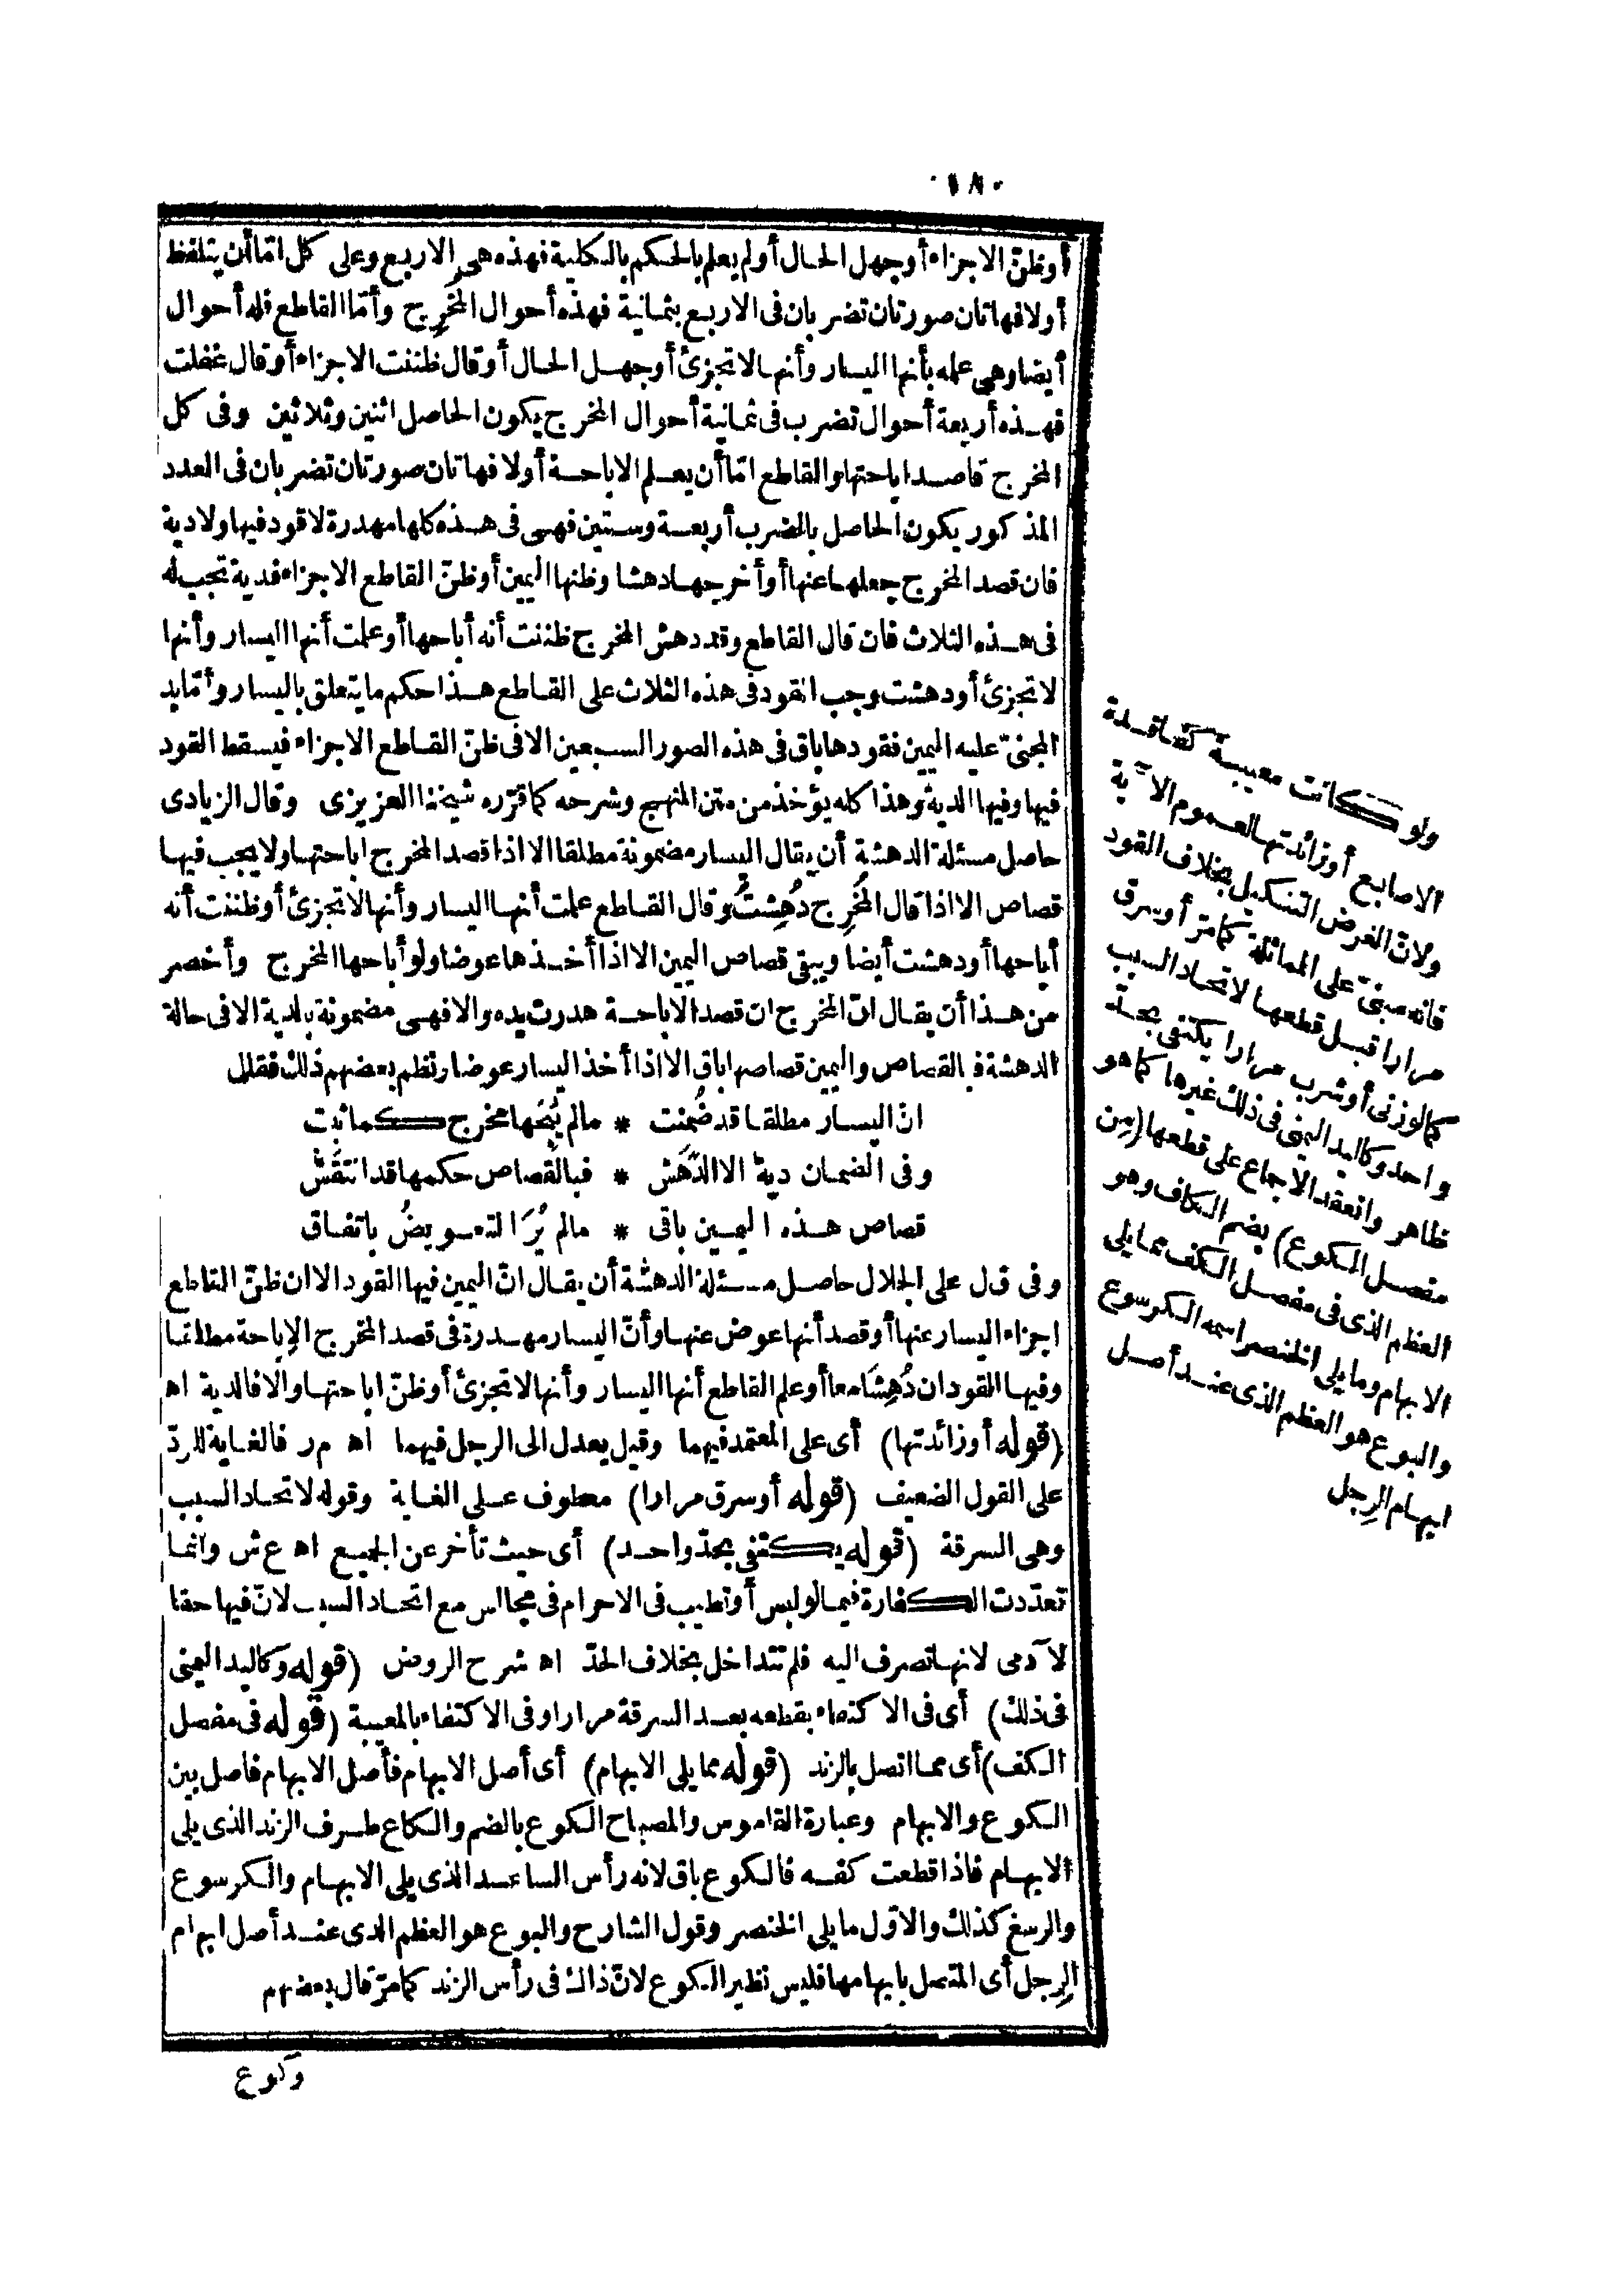 ١٨٠
أوظنّ الاجزاء أوجهل الحال أولم يعلم بالحكم بالكلية فهذه هي الاربع وعلى كل امّا أن يتلفظ
أولا فهاتان صورتان تضربان فى الاربع بثمانية فهذه أحوال المُخرِج وأمّا القاطع فله أحوال
أيضا وهى علمه بأنها اليسار وأنها لاتجزئ أوجهل الحال أوقال ظننت الاجزاء أوقال غفلت
فهذه أربعة أحوال تضرب فى ثمانية أحوال المخرج يكون الحاصل اثنين وثلاثين وفى كل
المخرج قاصدا باحتها والقاطع امّا أن يعلم الاباحة أولا فهاتان صورتان تضربان فى العدد
المذكور يكون الحاصل بالضرب أربعة وستين فهى فى هذه كلها مهدرة لاقود فيها ولادية
فان قصد المخرج جعلها عنها أو أخرجها دهشا وظنها اليمين أوظنّ القاطع الاجزاء فدية تجب له
فى هذه الثلاث فان قال القاطع وقد دهش المخرج ظننت أنه أباحها أوعلمت أنها اليسار وأنها
لاتجزئ أودهشت وجب القود فى هذه الثلاث على القاطع هذا حكم ما يتعلق باليسار وأمّا يد
المجنىّ عليه اليمين فقودها باق فى هذه الصور السبعين الا فى ظنّ القاطع الاجزاء فيسقط القود
فيها وفيها الدية وهذا كله يؤخذ من متن المنهج وشرحه كما قرّره شيخنا العزيزى وقال الزيادى
حاصل مسئلة الدهشة أن يقال اليسار مضمونة مطلقا الا اذا قصد المخرج اباحتها ولايجب فيها
قصاص الا اذا قال المُخرِج دُهِشتُ وقال القاطع علمت أنها اليسار وأنها لاتجزئ أوظننت أنه
أباحها أودهشت أيضا ويبقى قصاص اليمين الا اذا أخذها عوضا ولو أباحها المخرج وأخصر
من هذا أن يقال انّ المخرج ان قصد الاباحة هدرت يده والا فهى مضمونة بالدية الا فى حالة
الدهشة فبالقصاص واليمين قصاصها باق الا اذا أخذ اليسار عوضا ونظم بعضهم ذلك فقال
انّ اليسار مطلقا قد ضُمنت * مالم يُبحَها مخرج كما ثبت
وفى الضمان دية الا الدّهَش * فبالقصاص حكمها قد انتقَشْ
قصاص هذه اليمين باقى * مالم يُرَ التعويضُ باتفاق
وفى ق ل على الجلال حاصل مسئلة الدهشة أن يقال انّ اليمين فيها القود الا ان ظنّ القاطع
اجزاء اليسار عنها أوقصد أنها عوض عنها وأنّ اليسار مهدرة فى قصد المخرج الاباحة مطلقا
وفيها القود ان دُهِشَا معا أوعلم القاطع أنها اليسار وأنها لاتجزئ أوظنّ اباحتها والا فالدية اه
(قوله أوزائدتها) أى على المعتمد فيهما وقيل يعدل الى الرجل فيهما اه م ر فالغاية للردّ
على القول الضعيف (قوله أوسرق مرارا) معطوف على الغاية وقوله لاتحاد السبب
وهى السرقة (قوله يكتفى بحدّ واحد) أى حيث تأخر عن الجميع اه ع ش وانما
تعدّدت الكفارة فيما لو لبس أوتطيب فى الاحرام فى مجالس مع اتحاد السبب لانّ فيها حقا
لآدمى لانها تصرف اليه فلم تتداخل بخلاف الحدّ اه شرح الروض (قوله وكاليد اليمنى
فى ذلك) أى فى الاكتفاء بقطعه بعد السرقة مرارا وفى الاكتفاء بالمعيبة (قوله فى مفصل
الكف) أى مما اتصل بالزند (قوله مما يلى الابهام) أى أصل الابهام فأصل الابهام فاصل بين
الكوع والابهام وعبارة القاموس والمصباح الكوع بالضم والكاع طرف الزند الذى يلى
الابهام فاذا قطعت كفه فالكوع باق لانه رأس الساعد الذى يلى الابهام والكرسوع
والرسغ كذلك والاوّل ما يلى الخنصر وقول الشارح والبوع هو العظم الذى عند أصل ابهام
الرِجل أى المتصل بابهامها فليس نظير الكوع لانّ ذاك فى رأس الزند كما مرّ قال بعضهم
وكوع
ولو كانت معيبة كفاقدة
الاصابع أوزائدتها لعموم الآية
ولانّ الغرض التنكيل بخلاف القود
فانه مبنىّ على المماثلة كما مرّ أوسرق
مرارا قبل قطعها لاتحاد السبب
كما لو زنى أوشرب مرارا يكتفى بحدّ
واحد وكاليد اليمنى فى ذلك غيرها كما هو
ظاهر وانعقد الاجماع على قطعها (مِن
مفصل الكوع) بضم الكاف وهو
العظم الذى فى مفصل الكف مما يلى
الابهام وما يلى الخنصر اسمه الكرسوع
والبوع هو العظم الذى عند أصل
ابهام الرِجل